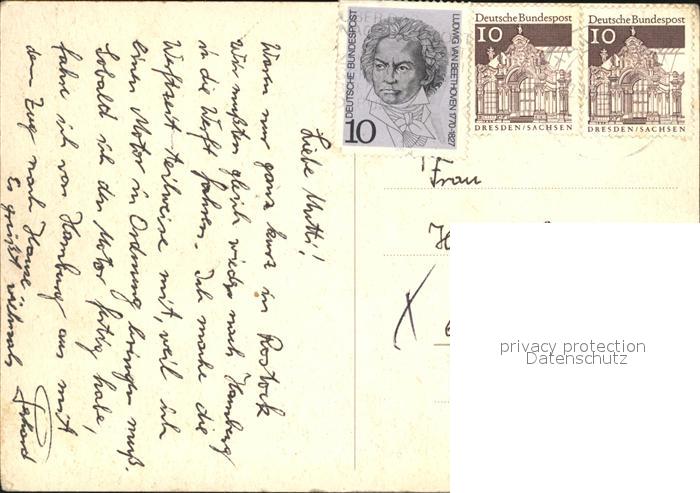 Liebe Mutti!
Waren nur ganz kurz in Rostock
Wir mußten gleich wieder nach Hamburg
in die Werft fahren. Ich mache die
Werftzeit teilweise mit, weil ich
einen Motor in Ordnung bringen muß.
Sobald ich den Motor fertig habe,
fahre ich von Hamburg aus mit
dem Zug nach Hause.
Es grüßt vielmals
Gerhard
DEUTSCHE BUNDESPOST
LUDWIG VAN BEETHOVEN 1770-1827
10
Deutsche Bundespost
10
DRESDEN/SACHSEN
Deutsche Bundespost
10
DRESDEN/SACHSEN
Frau
privacy protection
Datenschutz